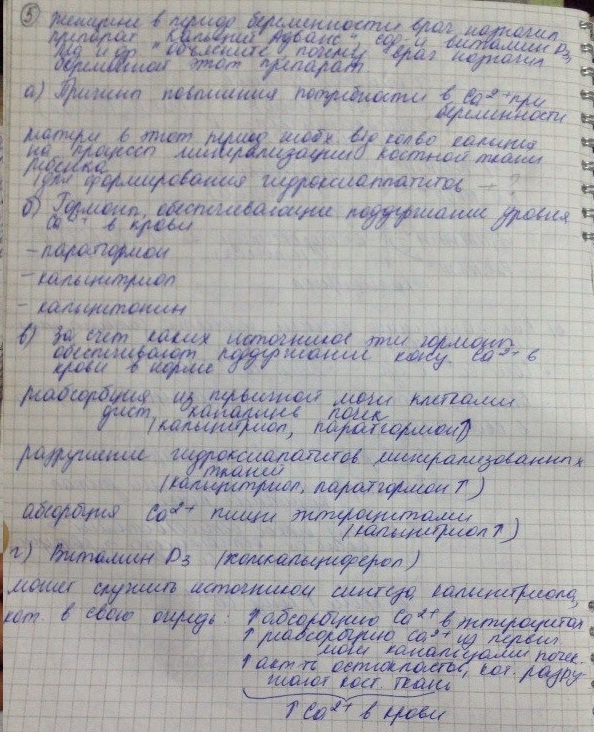 5) Женщине в период беременности врач назначил
препарат "Кальций Адванс", сод-й витамин D3,
и др. Объясните, почему врач назначил
беременной этот препарат.
а) Причины повышения потребности в Ca2+ при
беременности
матери в этот период необх. кол-во кальция
на процессы минерализации костной ткани
ребенка
для формирования гидроксиаппатитов
б) Гормоны, обеспечивающие поддержание уровня
Ca2+ в крови
- паратгормон
- кальцитриол
- кальцитонин
в) За счет каких источников эти гормоны
обеспечивают поддержание конц. Ca2+ в
крови в норме
реабсорбция из первичной мочи клетками
дист. канальцев почек
(кальцитриол, паратгормон↑)
разрушение гидроксиапатитов минерализованных
тканей
(кальцитриол, паратгормон↑)
абсорбция Ca2+ пищи энтероцитами
(кальцитриол↑)
г) Витамин D3 (холкальциферол)
может служить источником синтеза кальцитриола,
кот. в свою очередь: ↑абсорбцию Ca2+ в энтероцитах
↑реабсорбцию Ca2+ из первич.
мочи канальцами почек.
↑акт-ть остеокласты, кот. разру-
шают кост. ткань
↑Ca2+ в крови